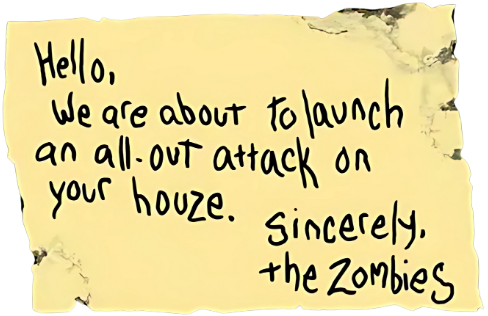 Hello,
We are about to launch
an all-out attack on
your houze.
Sincerely,
the Zombies